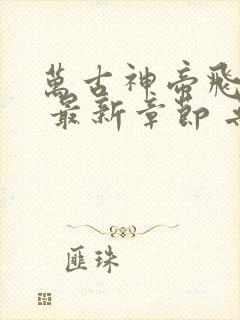 萬古神帝飛
最新章節
匪珠